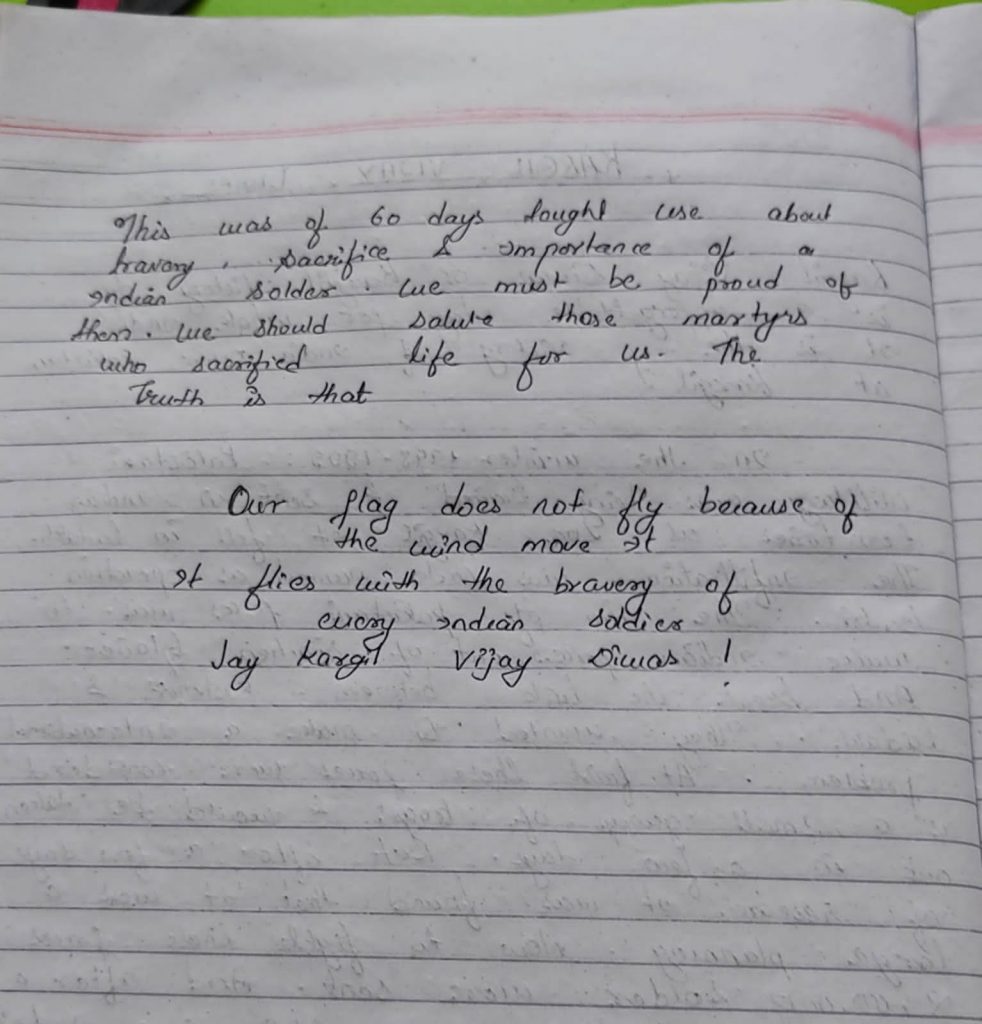 This was of 60 days fought use about
bravary, sacrifice & importance of a
indian solder. we must be proud of
them. we should salute those martyrs
who sacrified life for us. The
Truth is that
Our flag does not fly because of
the wind move it
It flies with the bravery of
every indian soldier
Jay Kargil Vijay Diwas !